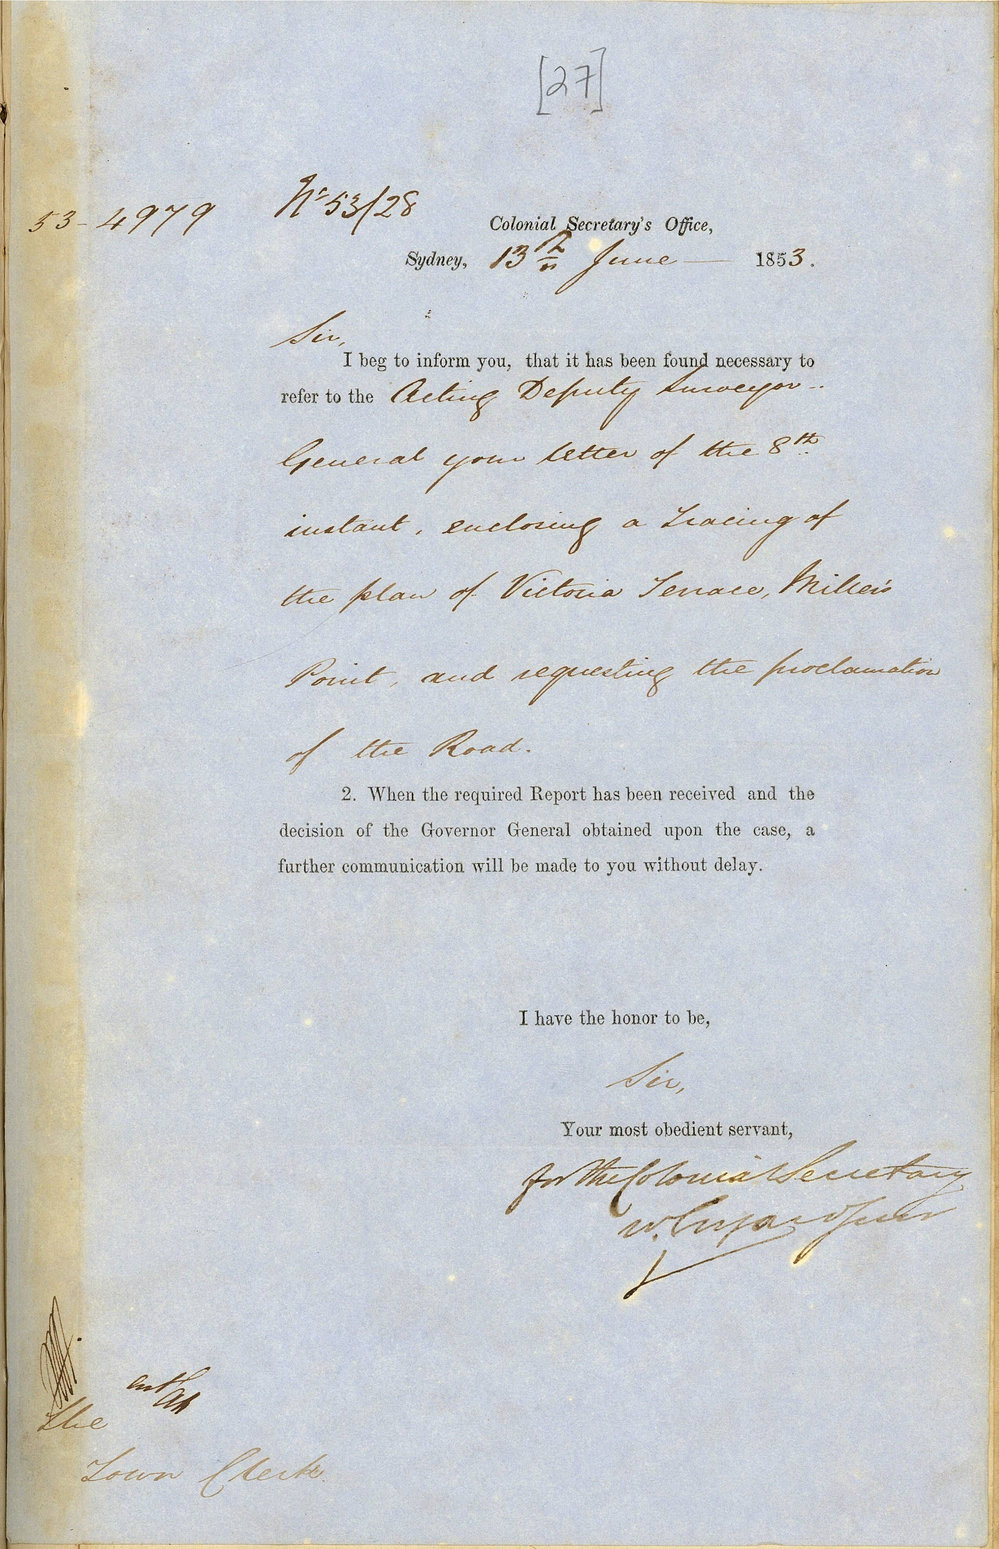 [27]
53-4979
No 53/28
Colonial Secretary's Office,
Sydney, 13th June 1853.
Sir,
I beg to inform you, that it has been found necessary to
refer to the Acting Deputy Surveyor
General your letter of the 8th
instant, enclosing a tracing of
the plan of Victoria Terrace, Miller's
Point, and requesting the proclamation
of the Road.
2. When the required Report has been received and the
decision of the Governor General obtained upon the case, a
further communication will be made to you without delay.
I have the honor to be,
Sir,
Your most obedient servant,
for the Colonial Secretary
W.
The
Town Clerk.